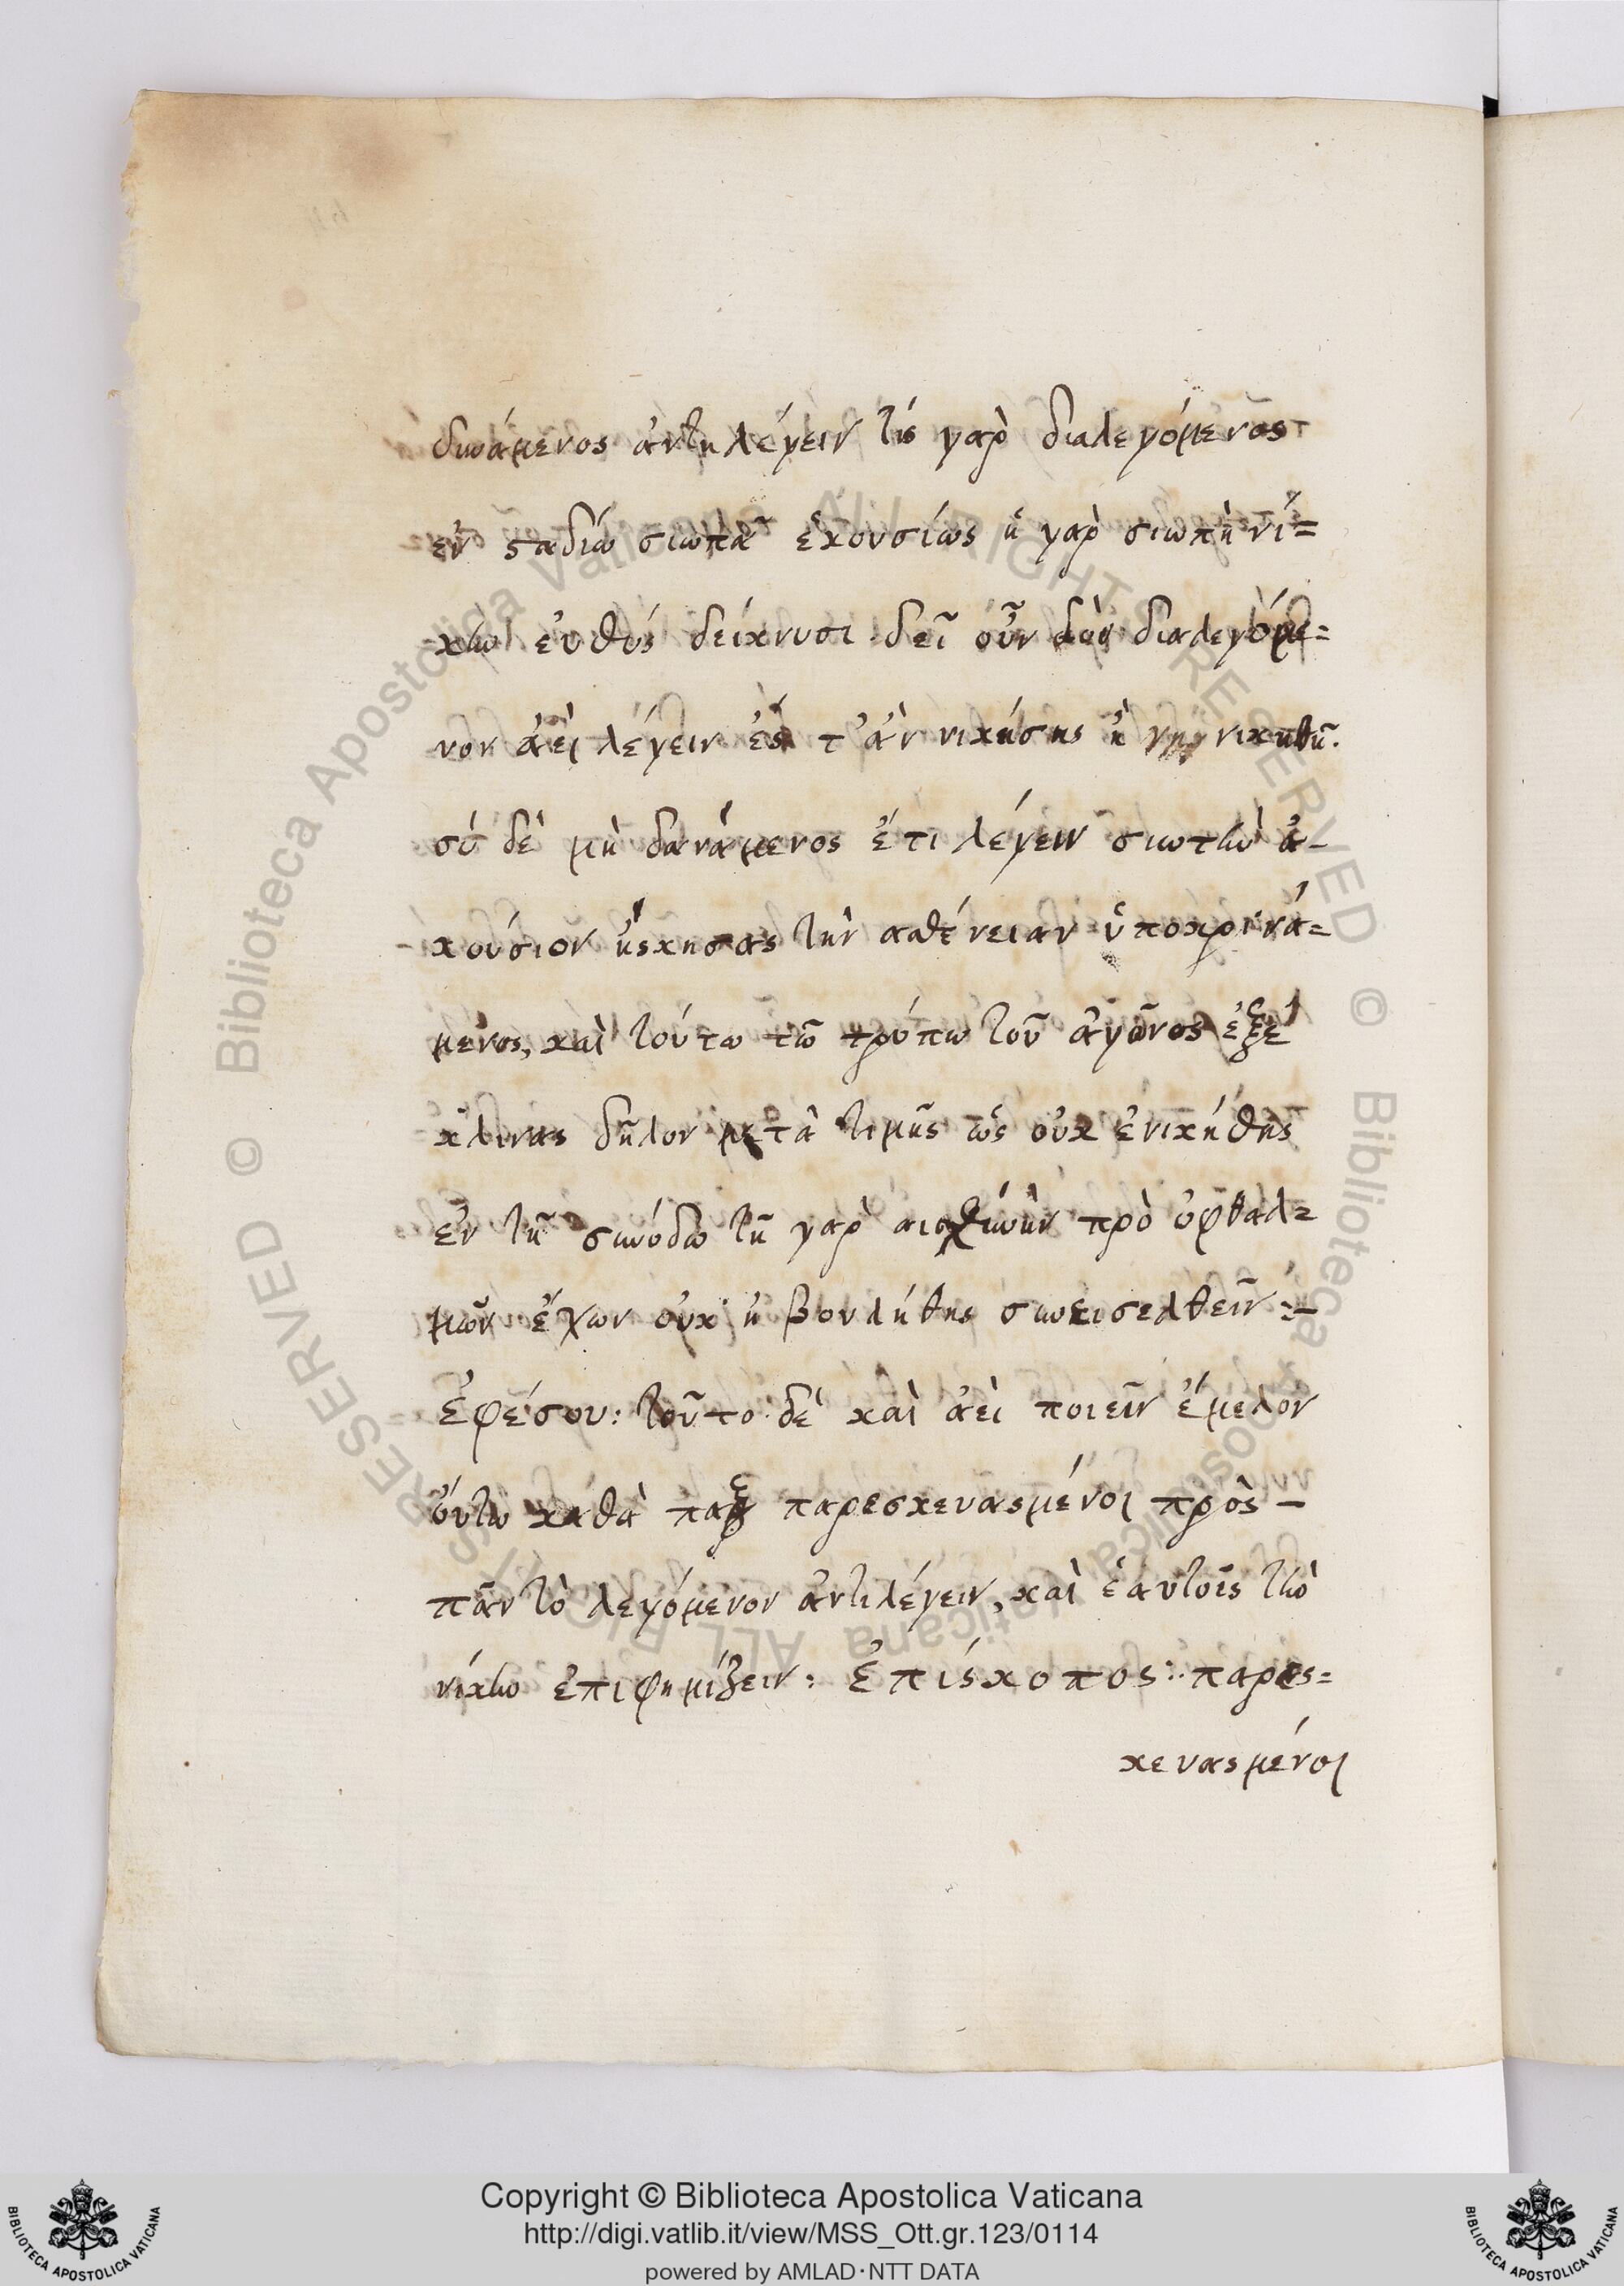 δυνάμενος ἀντηλέγειν τίς γαρ̀ διαλεγόμενος
εν̀ σταδίω σιωπᾶ ἑκουσίως ἡ γαρ̀ σιωπὴ νί=
κην ευθύς δείκνυσι δεῖ οὖν διαλεγόμε=
νον ἀεὶ λέγειν ἑς τ' ἀν νικήσης ἢ νικηθῆ.
σύ δὲ μὴ δανάμενος ἔτι λέγειν σιωτὴν ἀ-
κούσιον ἤσκησας τὴν ασθένειαν ὑποκρινά=
μενος, καὶ τούτω τῶ τρόπω τοῦ ἀγῶνος ἐξέ
κλινας δῆλον μετὰ τιμῆς ὡς οὐκ ἐνικήθης
εν τῆ συνόδω τὴ γαρ̀ αισχύνην πρὸ ὀφθαλ=
μῶν ἔχων οὐκ ἠβουλήθης συνεισελθεῖν:-
Ἐφέσου: τοῦτο δὲ καὶ ἀεὶ ποιεῖν ἔμελον
ὅυτω καθὰ παρεσκευασμένοι πρὸς -
πᾶν τὸ λεγόμενον ἀντιλέγειν, καὶ ἑαυτοῖς τὴν
νίκην ἐπιφημίζειν: Ἐπίσκοπος: παρεσ=
κευασμένοι
Copyright © Biblioteca Apostolica Vaticana
http://digi.vatlib.it/view/MSS_Ott.gr.123/0114
powered by AMLAD·NTT DATA